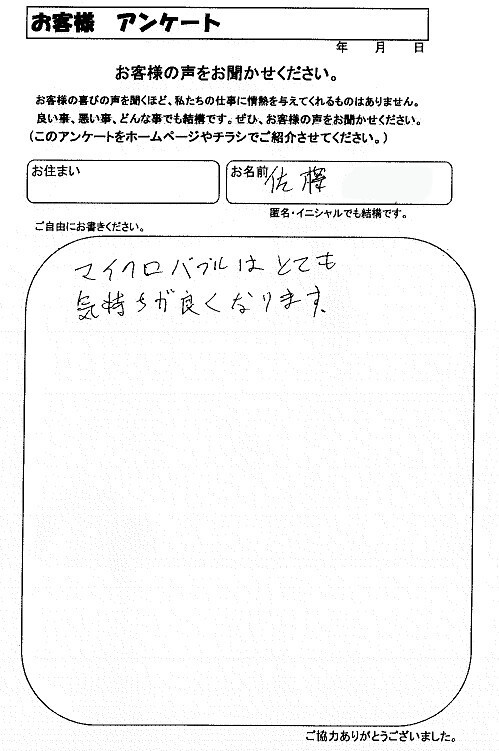 お客様　アンケート
年　月　日
お客様の声をお聞かせください。
お客様の喜びの声を聞くほど、私たちの仕事に情熱を与えてくれるものはありません。
良い事、悪い事、どんな事でも結構です。ぜひ、お客様の声をお聞かせください。
(このアンケートをホームページやチラシでご紹介させてください。)
お住まい
お名前 佐藤
匿名・イニシャルでも結構です。
ご自由にお書きください。
マイクロバブルはとても
気持ちが良くなります。
ご協力ありがとうございました。